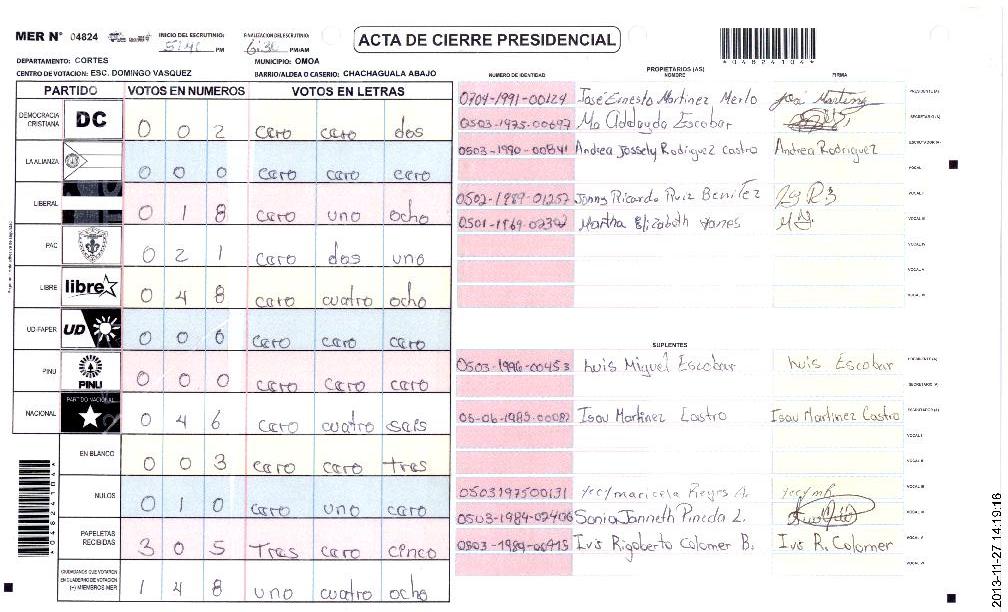 MER N° 04824 INICIO DEL ESCRUTINIO: 5:41 PM FINALIZACION DEL ESCRUTINIO: 6:30 PM/AM
ACTA DE CIERRE PRESIDENCIAL
*04824104*
DEPARTAMENTO: CORTES MUNICIPIO: OMOA
CENTRO DE VOTACION: ESC. DOMINGO VASQUEZ BARRIO/ALDEA O CASERIO: CHACHAGUALA ABAJO
PARTIDO VOTOS EN NUMEROS VOTOS EN LETRAS
DEMOCRACIA CRISTIANA DC 0 0 2 cero cero dos
LA ALIANZA 0 0 0 cero cero cero
LIBERAL 0 1 8 cero uno ocho
PAC 0 2 1 cero dos uno
LIBRE libre 0 4 8 cero cuatro ocho
UD-FAPER UD 0 0 0 cero cero cero
PINU PINU 0 0 0 cero cero cero
NACIONAL PARTIDO NACIONAL 0 4 6 cero cuatro seis
EN BLANCO 0 0 3 cero cero tres
NULOS 0 1 0 cero uno cero
PAPELETAS RECIBIDAS 3 0 5 Tres cero cinco
CIUDADANOS QUE VOTARON EN CUADERNO DE VOTACION (+) MIEMBROS MER 1 4 8 uno cuatro ocho
*04824104*
PROPIETARIOS (AS)
NUMERO DE IDENTIDAD NOMBRE FIRMA
0704-1991-00124 José Ernesto Martinez Merlo José Martinez PRESIDENTE (A)
0503-1975-00697 Ma Adelayda Escobar SECRETARIO (A)
0503-1990-00841 Andrea Jossely Rodriguez Castro Andrea Rodriguez ESCRUTADOR (A)
VOCAL I
0502-1989-01257 Jonny Ricardo Ruiz Benitez VOCAL II
0501-1969-02392 Martha Elizabeth Yanes VOCAL III
VOCAL IV
VOCAL V
VOCAL VI
SUPLENTES
0503-1996-00453 Luis Miguel Escobar Luis Escobar PRESIDENTE (A)
SECRETARIO (A)
05-06-1985-00082 Isau Martinez Castro Isau Martinez Castro ESCRUTADOR (A)
VOCAL I
VOCAL II
0503197500131 Maricela Reyes A. VOCAL III
0503-1984-02406 Sonia Janneth Pineda L. VOCAL IV
0503-1989-00415 Ivis Rigoberto Colomer B. Ivis R. Colomer VOCAL V
VOCAL VI
2013-11-27 14:19:16